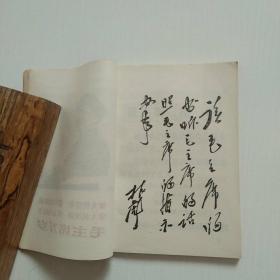 读毛主席的
书听毛主席的话
照毛主席的指示
办事
林彪
毛主席万岁